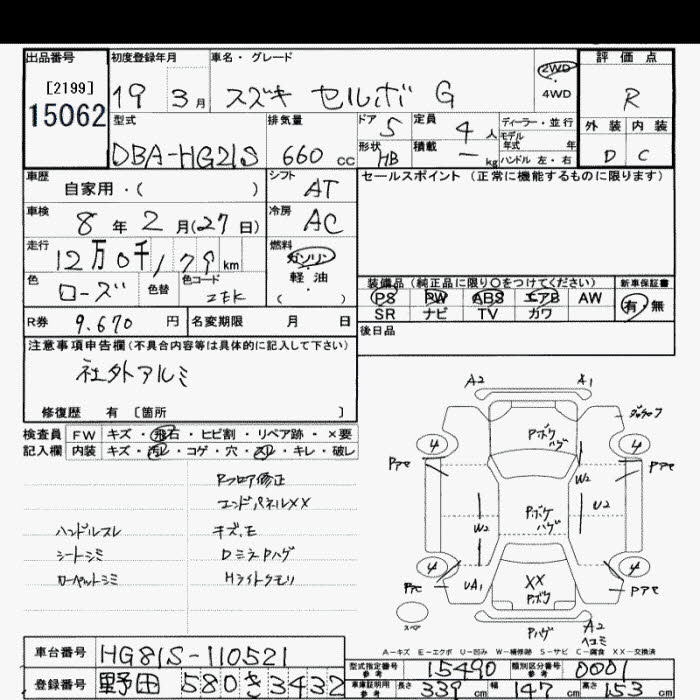 出品番号 初度登録年月 車名・グレード 評価点
[2199]
15062
19 3月 スズキ セルボ G
2WD
4WD
R
型式 排気量 ドア 定員 ディーラー・並行
モデル
年式 年
外装 内装
DBA-HG21S 660 cc 5 4 人
形状 積載 ハンドル 左・右
HB ー kg
D C
車歴 シフト セールスポイント（正常に機能するものに限ります）
自家用・（ ） AT
車検 冷房
8年 2月(27日) AC
走行 燃料
12万0千179 km ガソリン
軽油
（ ）
色 色替 色コード
ローズ ZEK
装備品（純正品に限り○をつけてください） 新車保証書
PS PW ABS エアB AW 有・無
SR ナビ TV カワ
R券 9.670 円 名変期限 月 日
後日品
注意事項申告欄（不具合内容等は具体的に記入して下さい）
社外アルミ
修復歴 有 〔箇所 〕
検査員 FW キズ・飛石・ヒビ割・リペア跡・×要
記入欄 内装 キズ・汚レ・コゲ・穴・スレ・キレ・破レ
Rフロア修正
エンドパネルXX
ハンドルスレ キズ、モ
シートシミ DミラーPハゲ
カーペットシミ Hライトクモリ
A2 A1
Pボケ
ハゲ
4 4
Pアセ Pアセ
W2
U2
Pボケ
ハゲ
W2
4 4
UA1 XX
Pボケ
Pアセ
スペア
Pハゲ A2
ヘコミ
A－キズ E－エクボ U－凹み W－補修跡 S－サビ C－腐食 XX－交換済
車台番号 HG21S-110521
型式指定番号 15490 類別区分番号 0001
参考 参考
登録番号 野田 580 き 3432
車庫証明用 長さ 339 cm 幅 147 cm 高さ 153 cm
参考